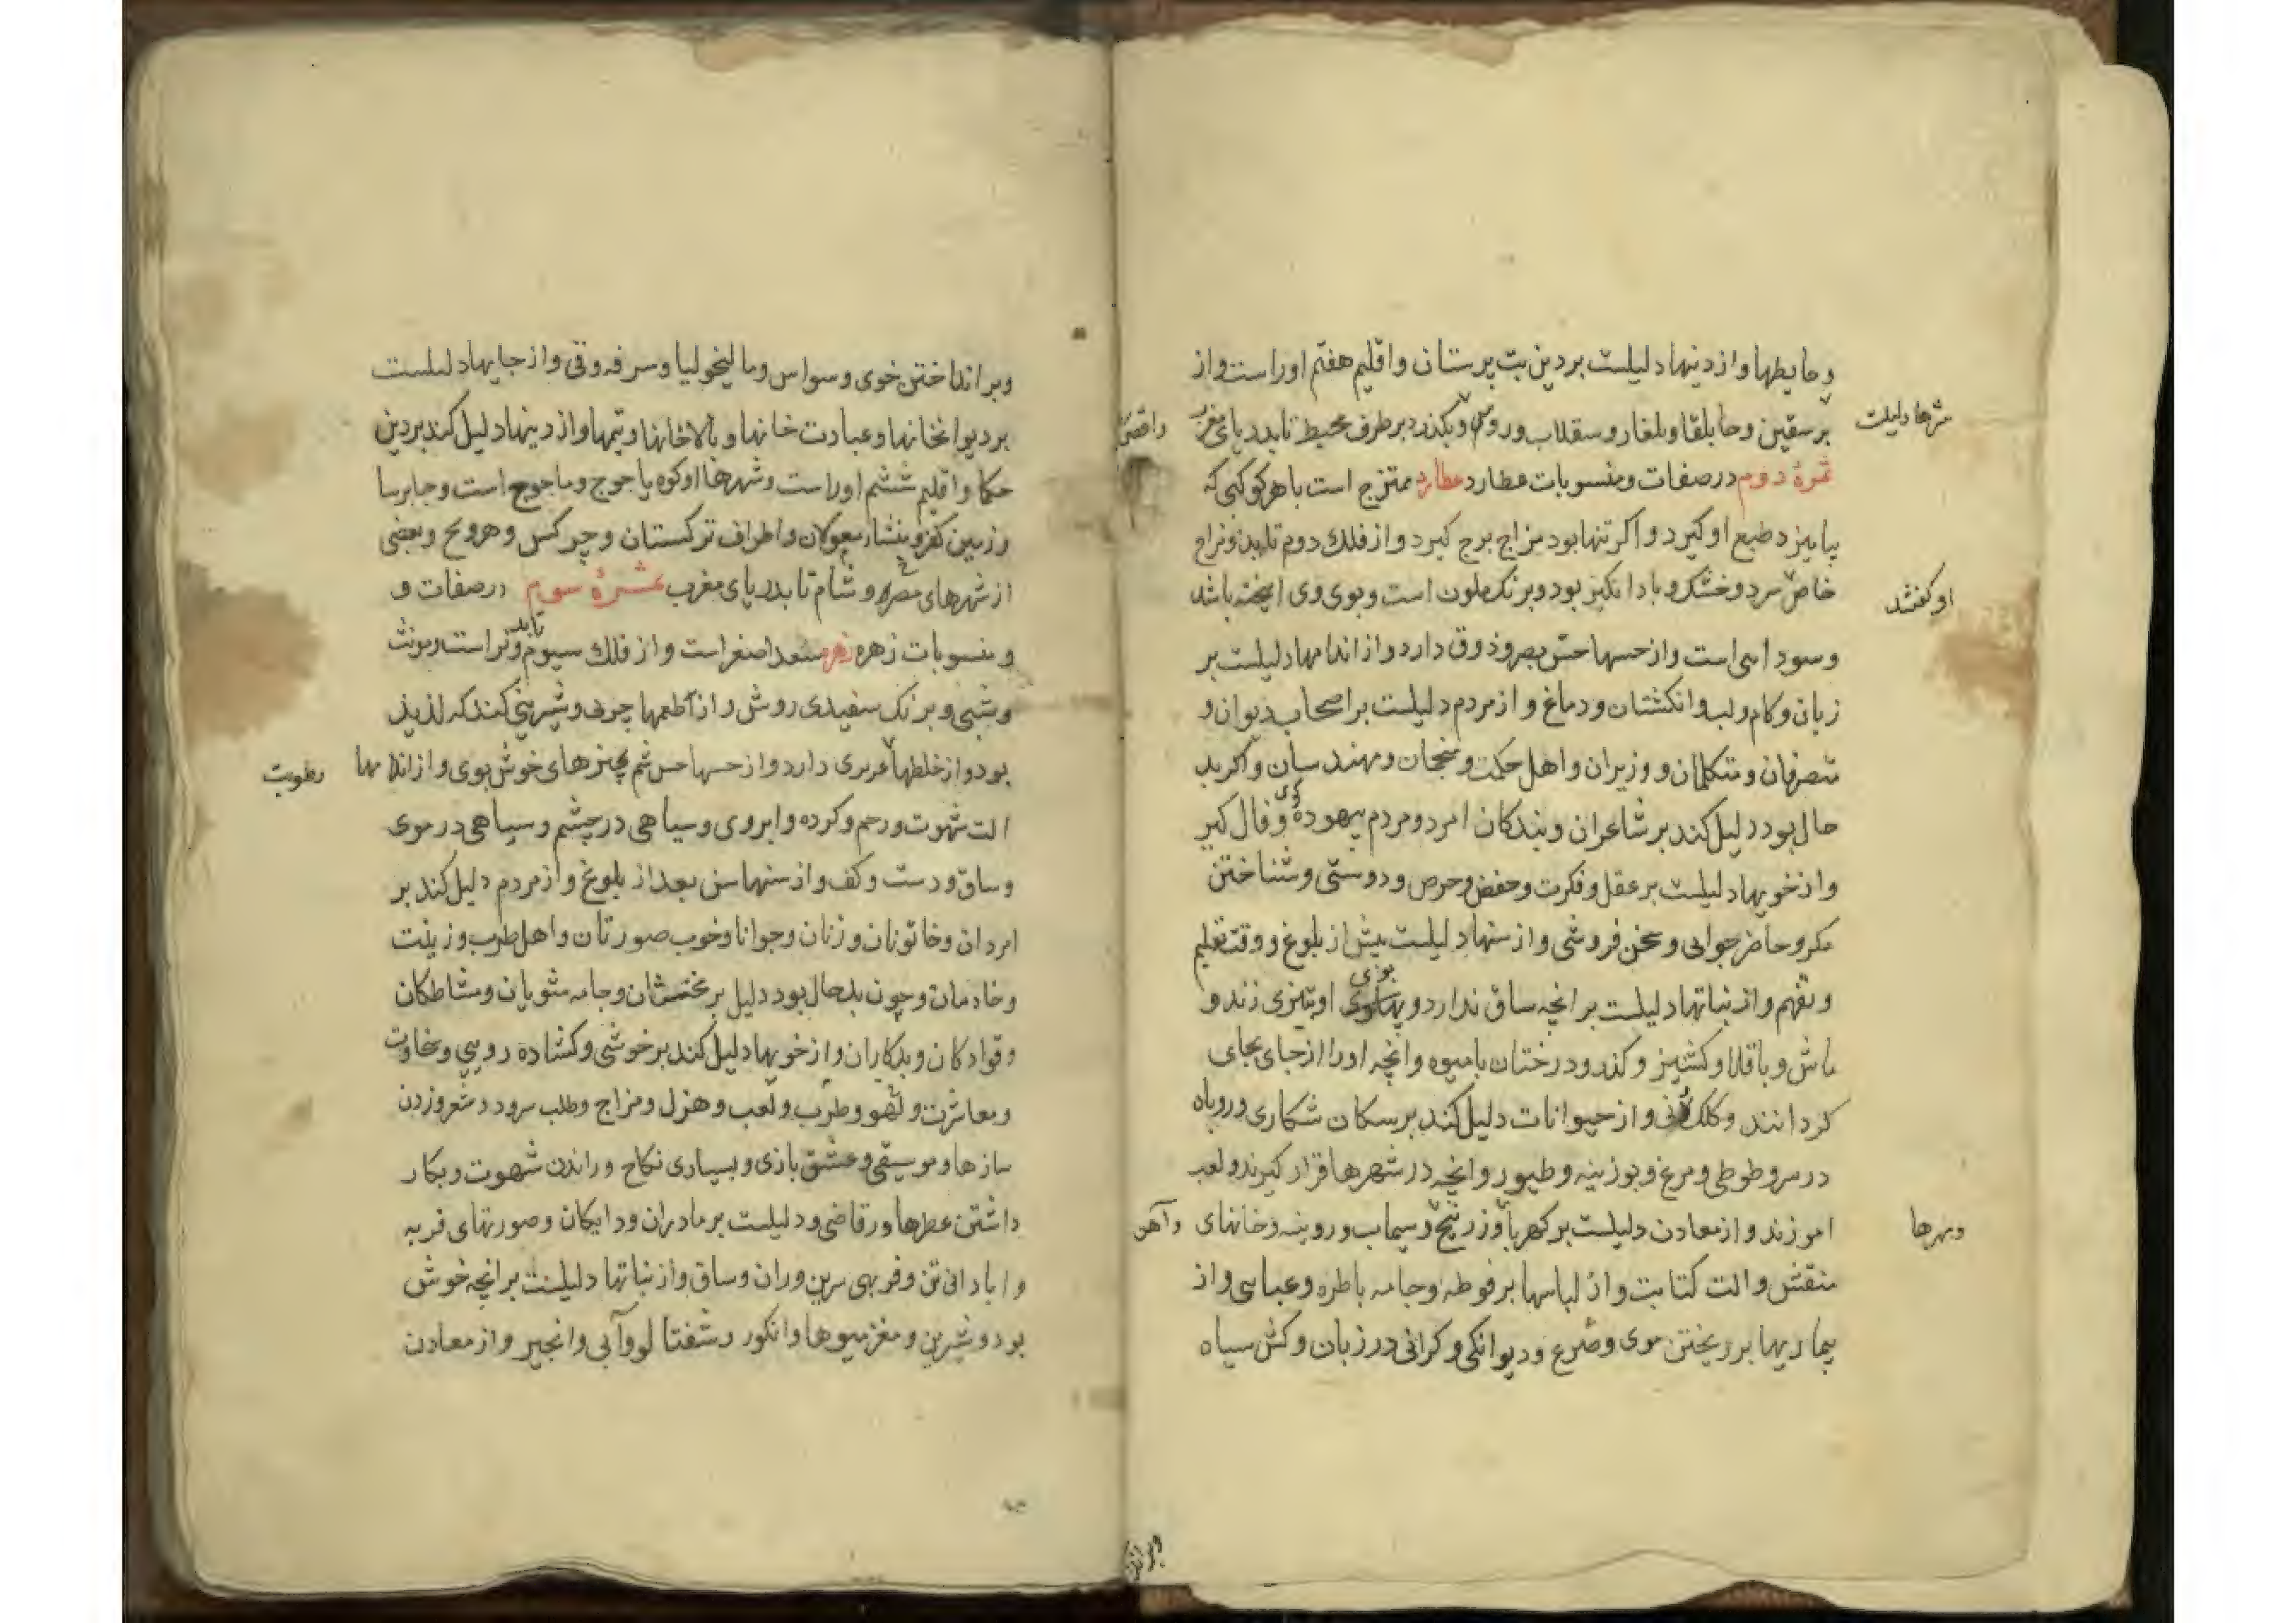 و حایطها و از دینها دلیلست بر دین بت پرستان و اقلیم هفتم اوراست و از
شهرها دلیلست
بر سقین و جابلقا و بلغار و سقلاب و روس و بکذرد بر طرف محیط تا بدریای مغرب
ثمرهٔ دوم در صفات و منسوبات عطارد عطارد ممتزج است با هر کوکبی که
بیامیزد طبع او کیرد و اکر تنها بود مزاج برج کیرد و از فلک دوم تابد و مزاج
خاص سرد و خشک و باد انکیز بود و برنک ملون است و بوی وی امیخته باشد
او کفتند
و سودایی است و از حسها حس بصر و ذوق دارد و از اندامها دلیلست بر
زبان و کام و لب و انکشتان و دماغ و از مردم دلیلست بر اصحاب دیوان و
متصرفان و متکلمان و وزیران و اهل حکمت و منجمان و مهندسان و اکر بد
حال بود دلیل کند بر شاعران و بندکان امرد و مردم بیهوده کوی و فال کیر
و از خویها دلیلست بر عقل و فکرت و حفض و حرص و دوستی و شناختن
مکر و حاضر جوابی و سخن فروشی و از سنها دلیلست پیش از بلوغ و وقت تعلیم
و تفهم و از نباتها دلیلست بر انچه ساق ندارد و بوی او تیزی زند و
ماش و باقلا و کشنیز و کذر و درختان بامیوه و انچه اورا از جای بجای
کردانند و کلک و نی و از حیوانات دلیل کند بر سکان شکاری و روباه
در سر و طوطی و مرغ و بوزینه و طیور و انچه در شهرها قرار کیرند و لعب
اموزند و از معادن دلیلست بر کهربا و زرنیخ و سیماب و روینه و خانهای
و آهن
و مهرها
منقش و الت کتابت و از لباسها بر فوطه و جامه باطره و عباسی و از
بیماریها بر ریختن موی و صرع و دیوانکی و کرانی در زبان و کش سیاه
و بر اند
و بر انداختن خوی و سواس و مالیخولیا و سرفه و قی و از جایها دلیلست
بر دیوانخانها و عبادت خانها و بالاخانها و تیمها و از دینها دلیل کند بر دین
حکما و اقلیم ششم اوراست و شهرها او کوه یاجوج و ماجوج است و جابرسا
و زمین کفر و منشار معولان و اطراف ترکستان و چرکس و هرویح و بعضی
از شهرهای مصر و شام تا بدریای مغرب عشرهٔ سوم در صفات و
و منسوبات زهره زهره سعد اصغر است و از فلک سیوم تابد و تر است و مونث
و شبی و برنک سفیدی روشن و از طعمها چربی و شیرینی کند که لذیذ
بود و از خلطها رطوبت مربری دارد و از حسها حس شم بچیزهای خوش بوی و از اندامها
الت شهوت و رحم و کرده و ابروی و سیاهی در چشم و سیاهی در موی
و ساق و دست و کف و از سنها سن بعد از بلوغ و از مردم دلیل کند بر
امردان و خاتونان و زنان و جوانا و خوب صورتان و اهل طرب و زینت
و خادمان و چون بدحال بود دلیل بر مخنثان و جامه شویان و مشاطکان
و قوادکان و بدکاران و از خویها دلیل کند بر خوشی و کشاده رویی و سخاوت
و معاشرت و لهو و طرب و لعب و هزل و مزاج و طلب سرود و شعر و زدن
سازها و موسیقی و عشق بازی و بسیاری نکاح و راندن شهوت و بکار
داشتن عطرها و رقاصی و دلیلست بر مادران و دایکان و صورتهای فربه
و ابادانی تن و فربهی سرین و ران و ساق و از نباتها دلیلست بر انچه خوش
بود و شیرین و مغز میوها و انکور و شفتالو و آبی و انجیر و از معادن